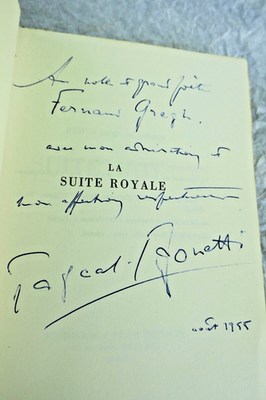 Au noble et grand poète
Fernand Gregh.
avec mon admiration et
LA
SUITE ROYALE
mon affection respectueuse
Pascal-Bonetti
août 1955